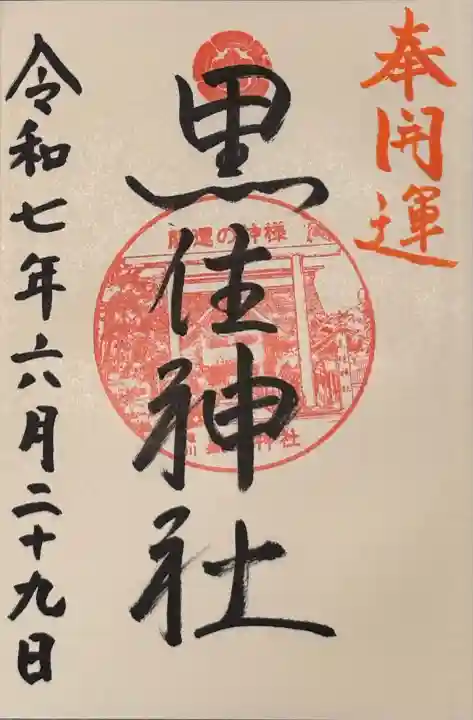 奉開運
黒住神社
開運の神様
神社
令和七年六月二十九日